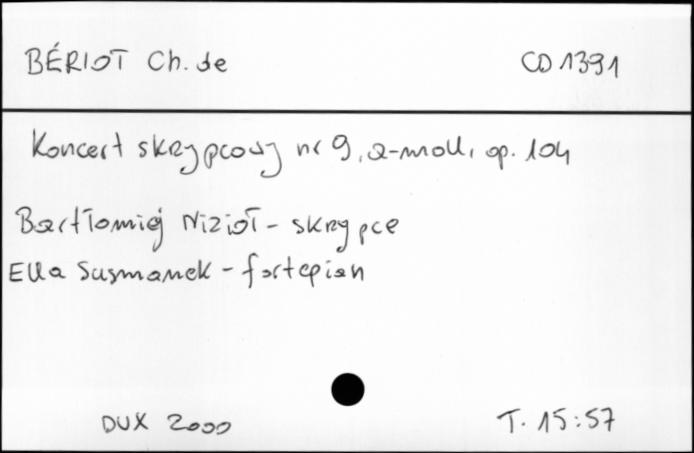 BÉRIOT Ch. de CD 1391
Koncert skrzypcowy nr 9, a-moll, op. 104
Bartłomiej Nizioł - skrzypce
Ella Susmanek - fortepian
DUX 2000 T. 15:57